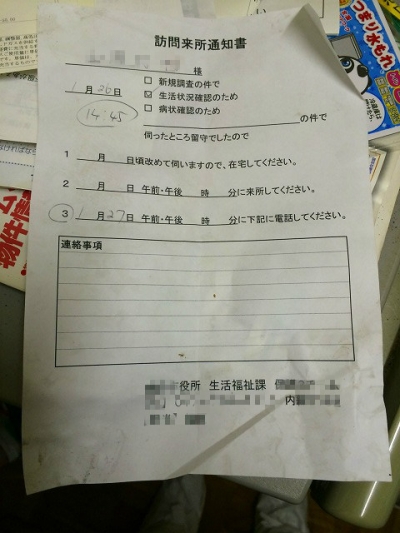 訪問来所通知書
様
1月26日
14:45
□ 新規調査の件で
☑ 生活状況確認のため
□ 病状確認のため
の件で
伺ったところ留守でしたので
1 月 日頃改めて伺いますので、在宅してください。
2 月 日 午前・午後 時 分に来所してください。
③ 1月27日 午前・午後 時 分に下記に電話してください。
連絡事項
役所 生活福祉課
内
つまり水もれ